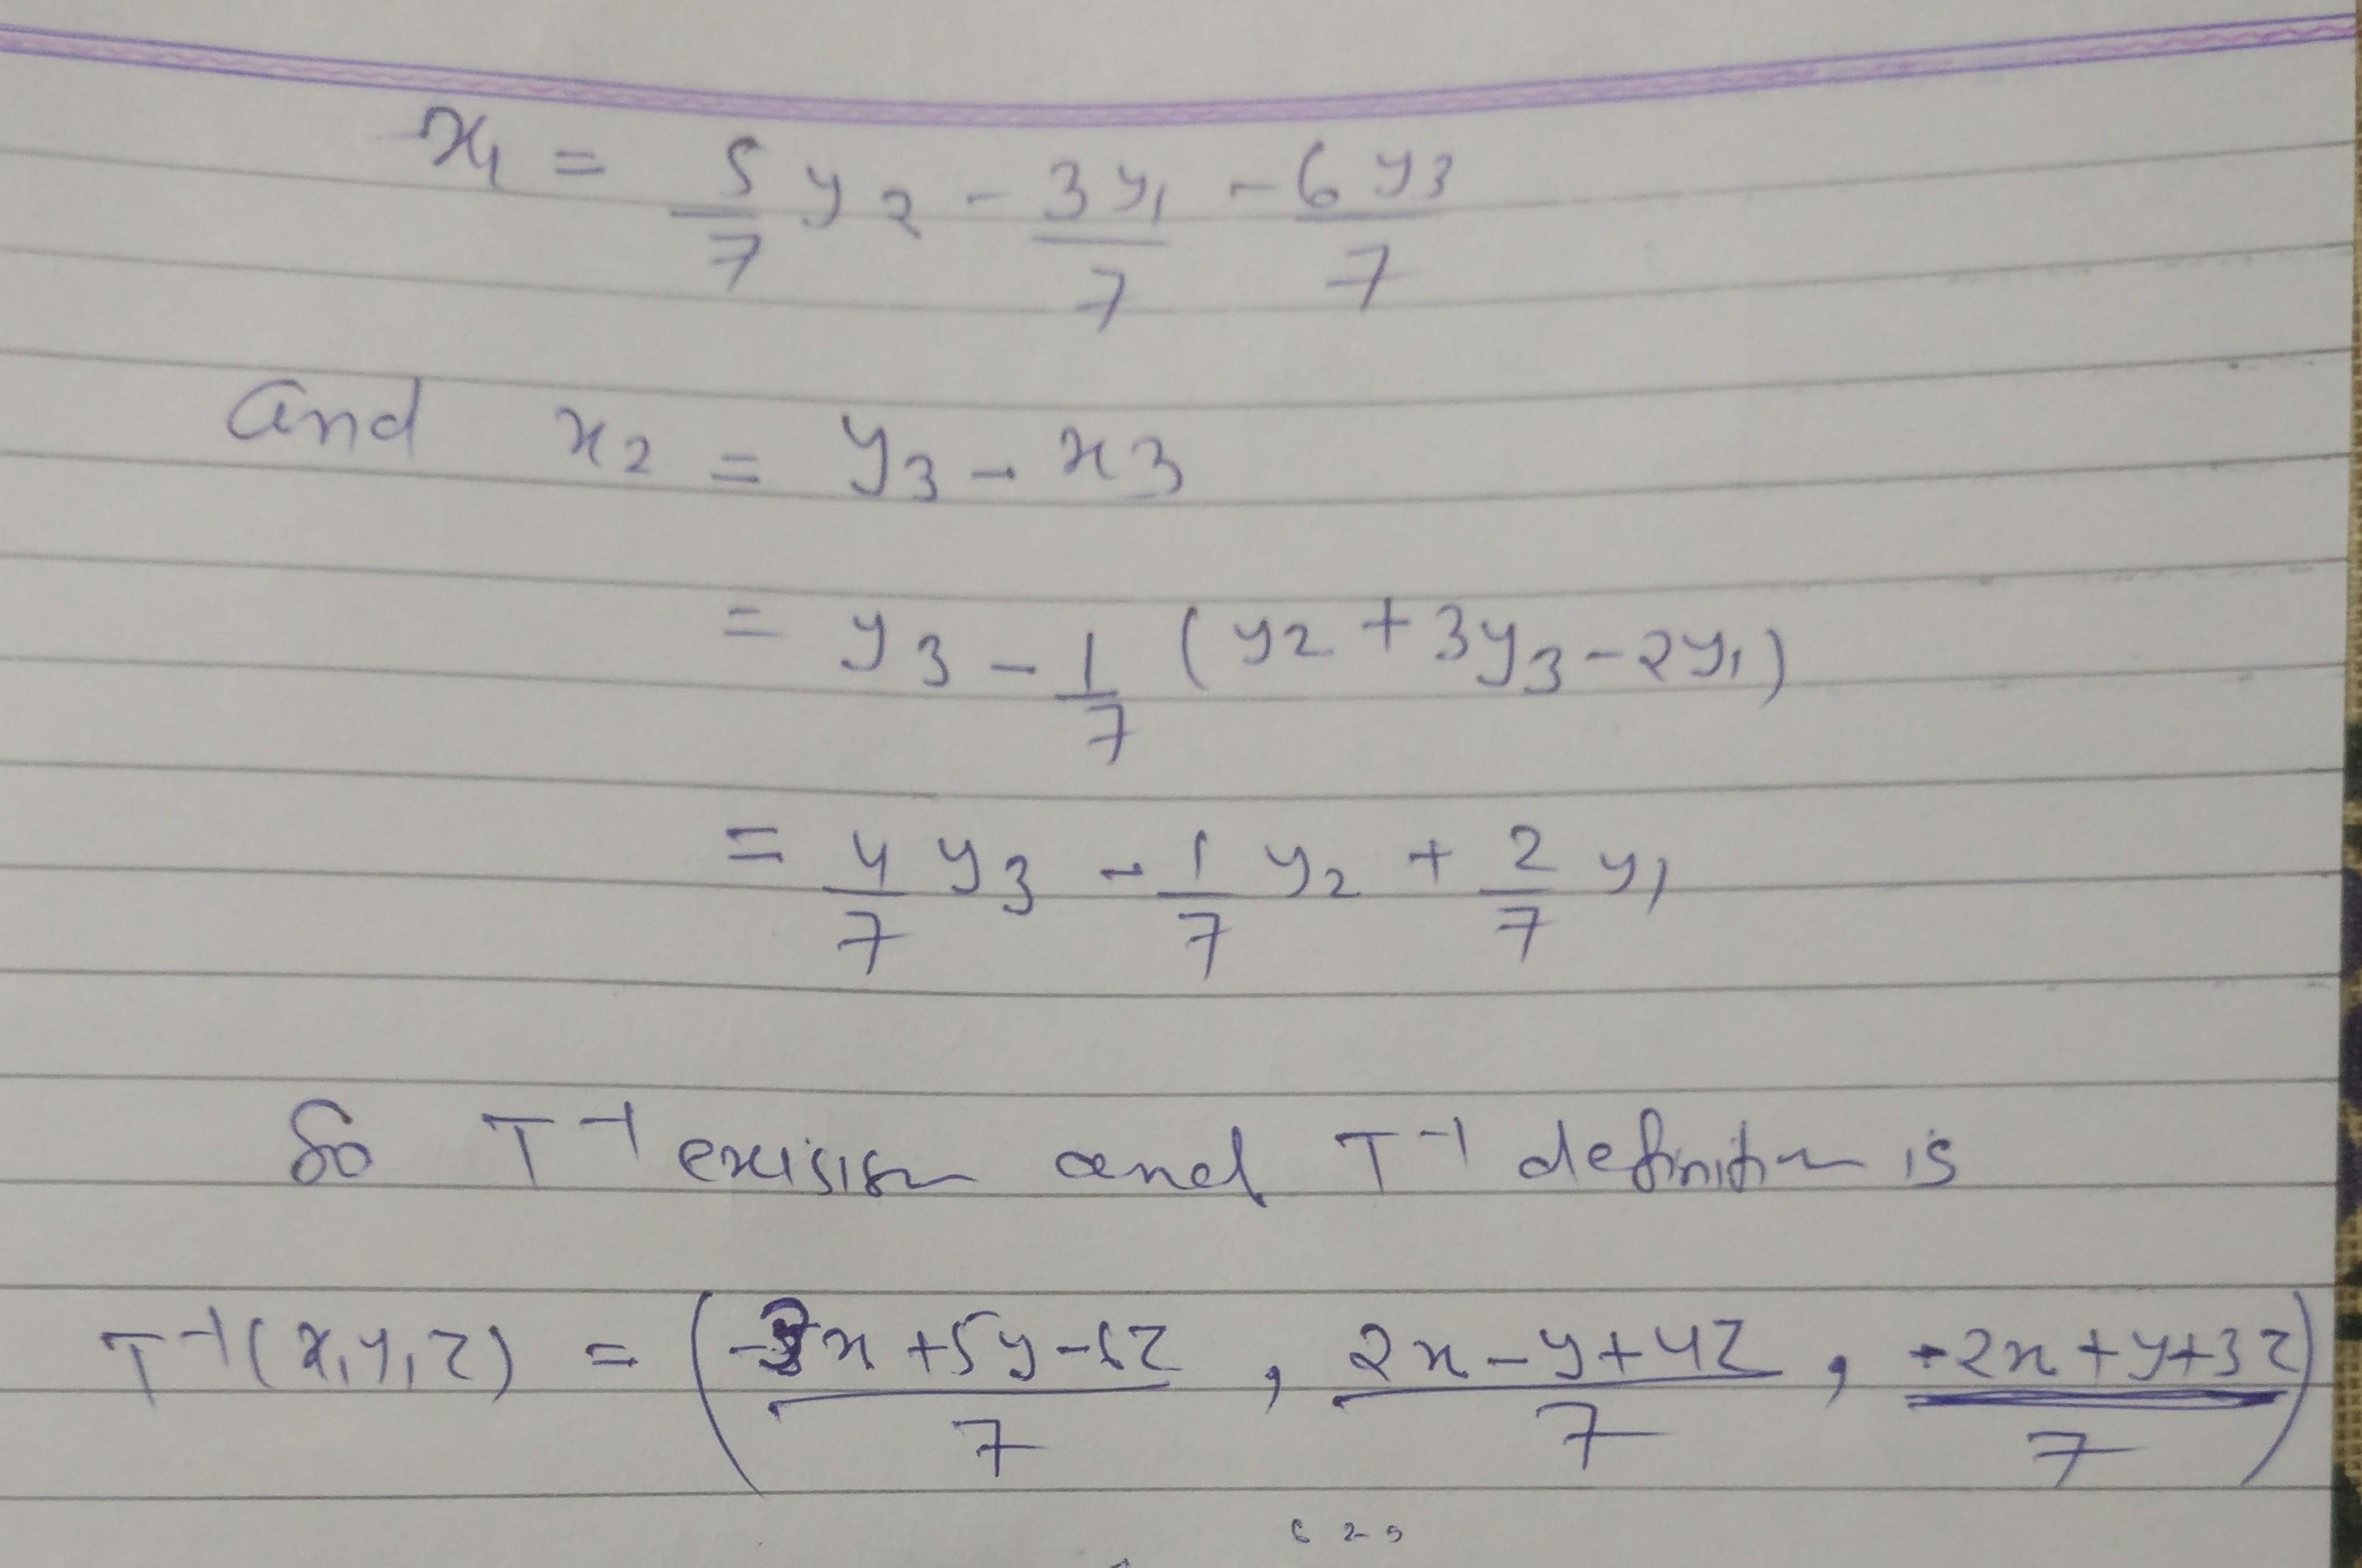 x₁ = 5/7 y₂ - 3y₁/7 - 6y₃/7
and x₂ = y₃ - x₃
= y₃ - 1/7 (y₂ + 3y₃ - 2y₁)
= 4/7 y₃ - 1/7 y₂ + 2/7 y₁
So T⁻¹ and T⁻¹ definition is
T⁻¹(x,y,z) = ((-3x+5y-6z)/7, (2x-y+4z)/7, (-2x+y+3z)/7)